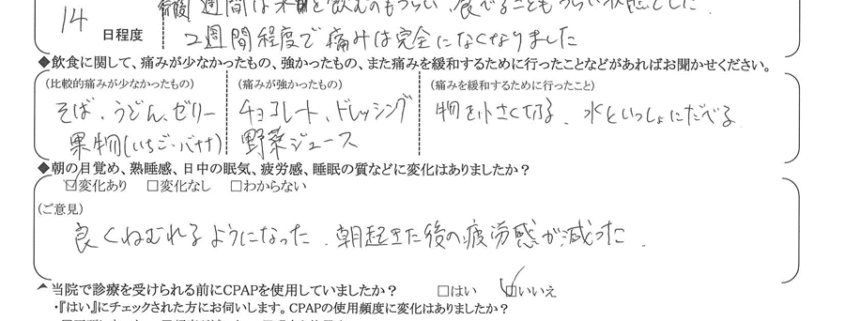 術後1週間は水を飲むのもつらい、食べることもつらい状態でした.
14
日程度
2週間程度で痛みは完全になくなりました
◆飲食に関して、痛みが少なかったもの、強かったもの、また痛みを緩和するために行ったことなどがあればお聞かせください。
(比較的痛みが少なかったもの) (痛みが強かったもの) (痛みを緩和するために行ったこと)
そば、うどん、ゼリー チョコレート、ドレッシング 物を小さく切る、水といっしょにたべる
果物(いちご・バナナ) 野菜ジュース
◆朝の目覚め、熟睡感、日中の眠気、疲労感、睡眠の質などに変化はありましたか？
☑変化あり □変化なし □わからない
(ご意見)
良くねむれるようになった、朝起きた後の疲労感が減った.
当院で診療を受けられる前にCPAPを使用していましたか？ □はい ☑いいえ
・『はい』にチェックされた方にお伺いします。CPAPの使用頻度に変化はありましたか？